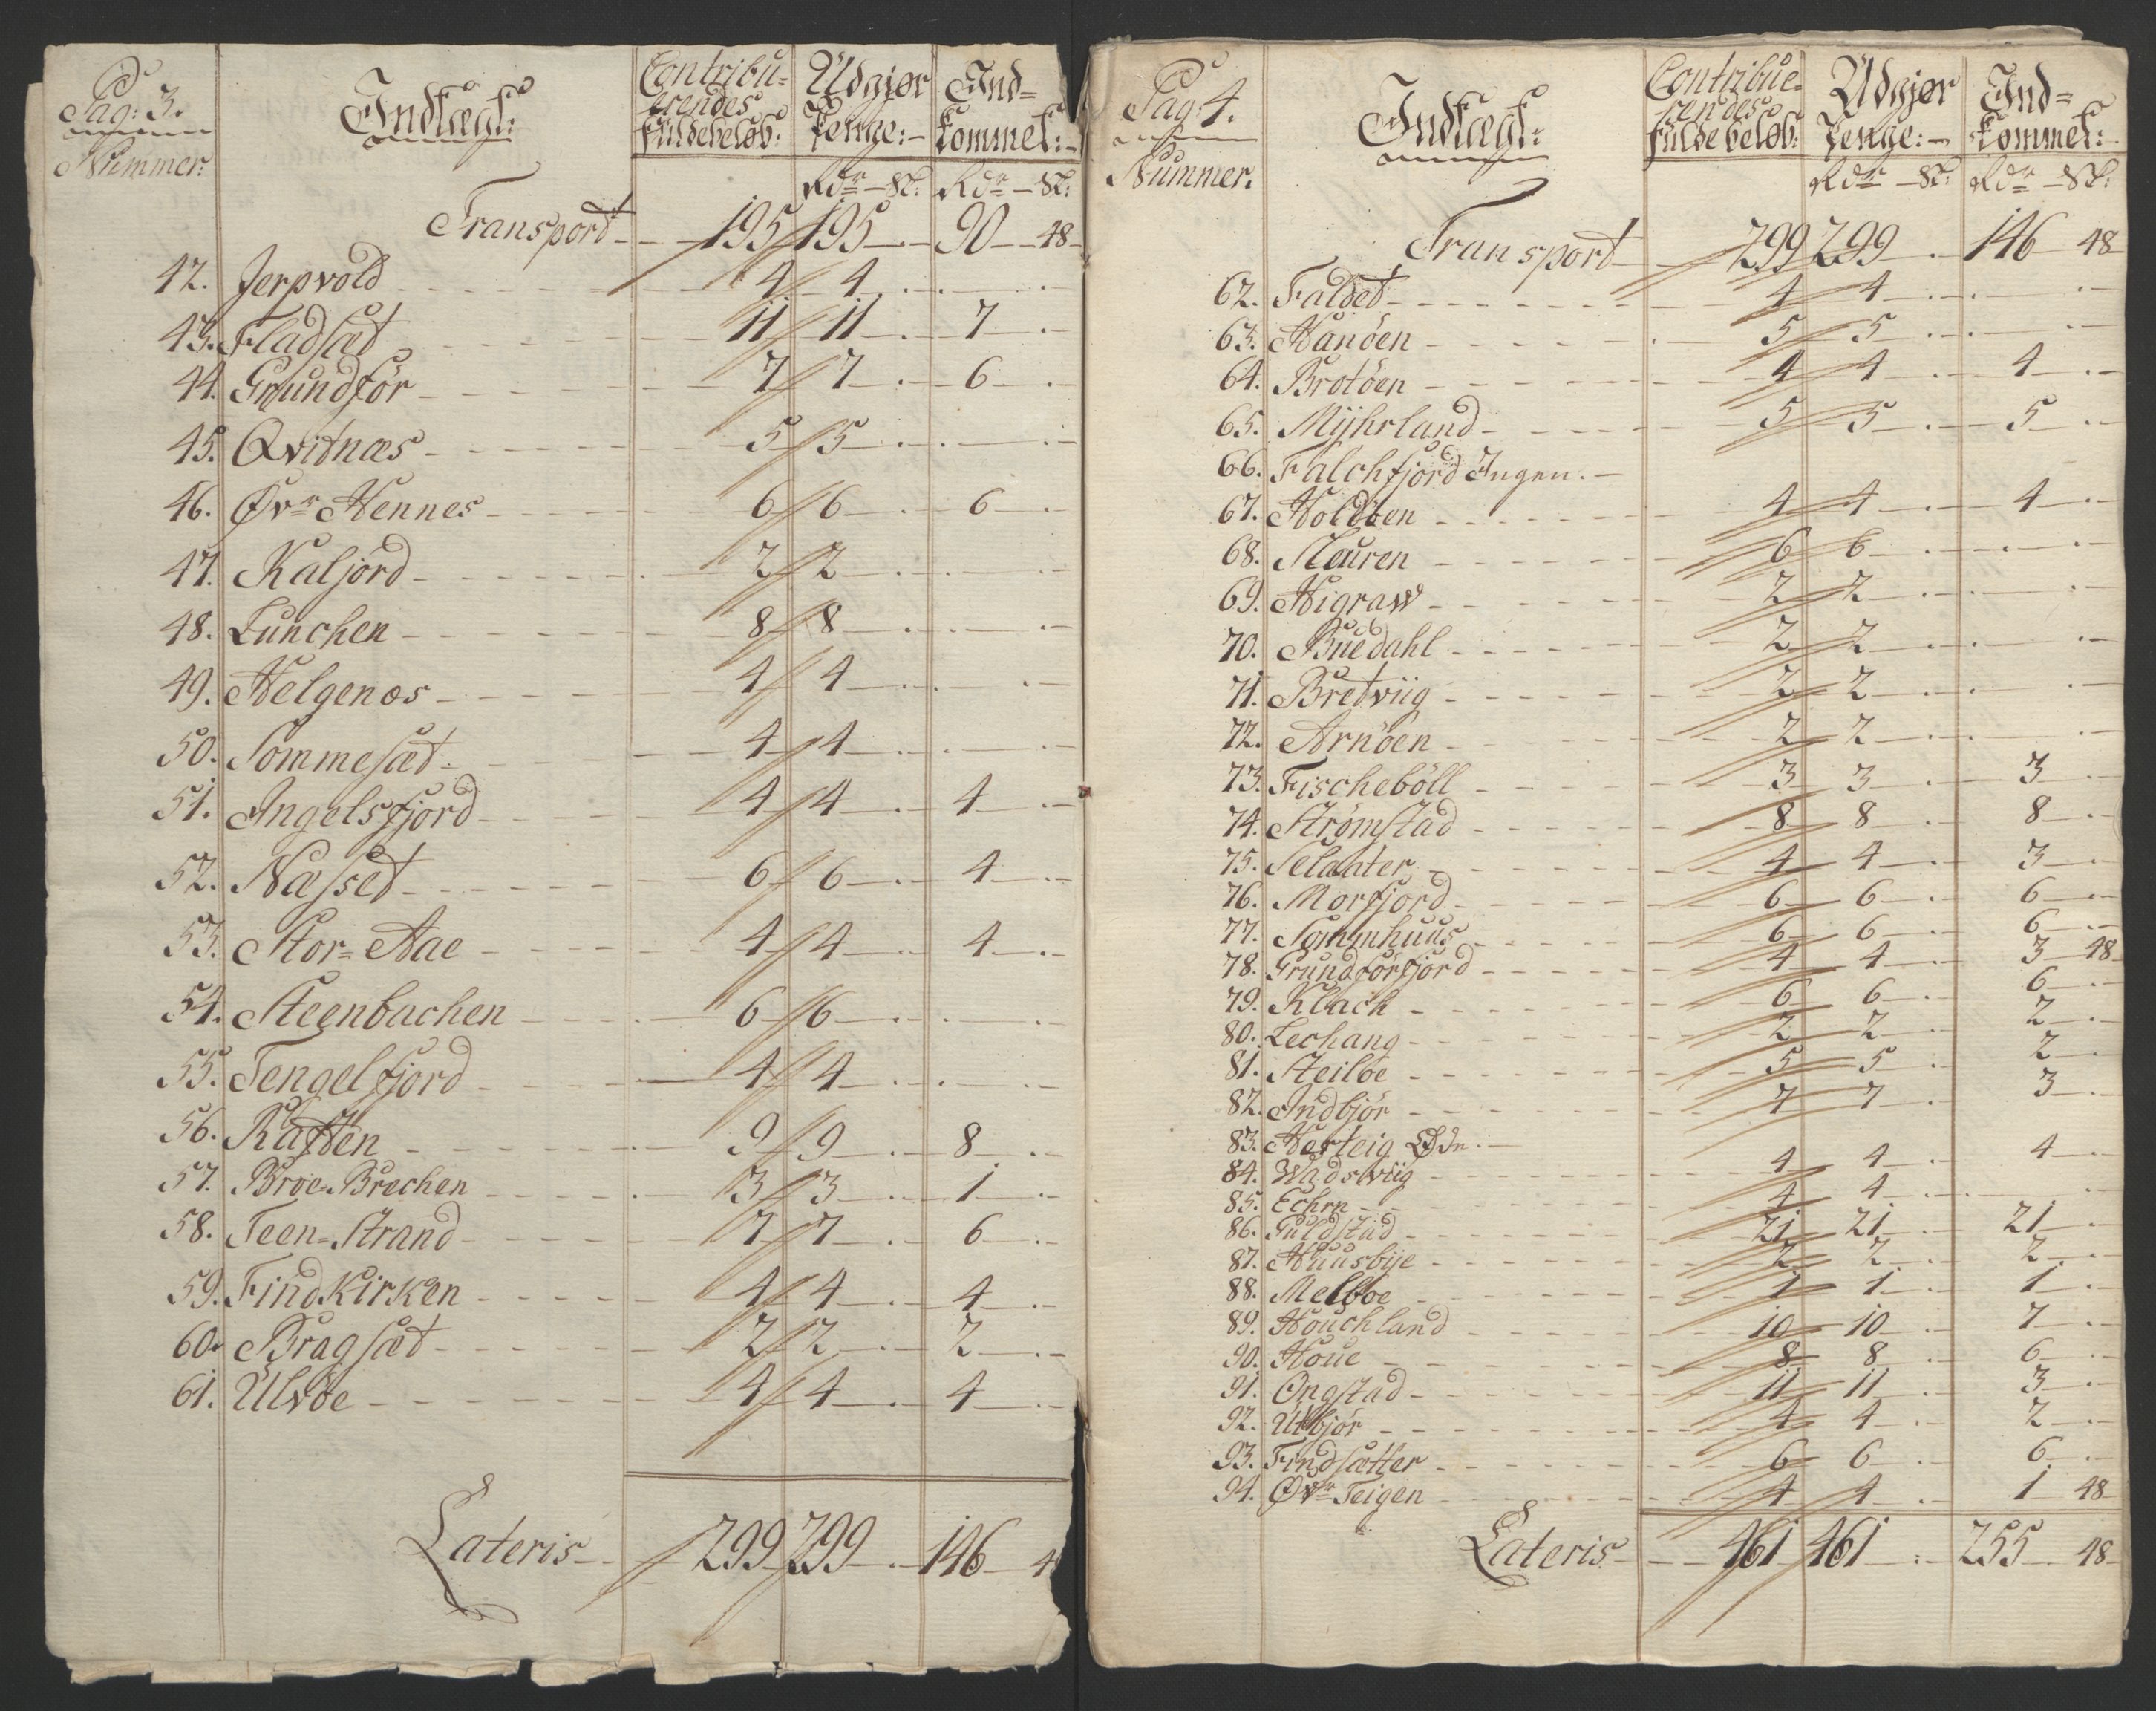 Pag: 3.
Nummer:
Indtægt:
Contribu-
erendes
fuldebeløb:
Udgiør
Penge:-
Ind-
kommet:-
Rdr - Sk: Rdr - Sk:
Transport - - 195 195 - . - 90 - 48 -
42. Jerpvold - - - 4 4 - . - . -
43. Fladsæt - - - 11 11 - . - 7 - . -
44. Grundfør - - - 7 7 - . - 6 - . -
45. Qvitnæs - - - 5 5 - . - . -
46. Øvr Hennes - - - 6 6 - . - 6 - . -
47. Kaljord - - - 2 2 - . - . -
48. Lunchen - - - 8 8 - . - . -
49. Helgenæs - - - 4 4 - . - . -
50. Sommesæt - - - 4 4 - . - . -
51. Ingelsfjord - - - 4 4 - . - 4 - . -
52. Næsset - - - 6 6 - . - 4 - . -
53. Stor=Aae - - - 4 4 - . - 4 - . -
54. Steenbachen - - - 6 6 - . - . -
55. Tengelfjord - - - 4 4 - . - . -
56. Raften - - - 9 9 - . - 8 - . -
57. Broe-Brechen - - - 3 3 - . - 1 - . -
58. Teen-Strand - - - 7 7 - . - 6 - . -
59. Findkirken - - - 4 4 - . - 4 - . -
60. Bragsæt - - - 2 2 - . - 2 - . -
61. Ulvøe - - - 4 4 - . - 4 - . -
Lateris - - 299 299 - . - 146 - 4
Pag: 4.
Nummer.
Indtægt:
Contribue-
rendes
fuldebeløb:
Udgiør
Penge:-
Ind-
kommet:-
Rdr - Sk: Rdr - Sk:
Transport - - 299 299 - . 146 - 48 -
62. Faldet - - - 4 4 - . - . -
63. Hanøen - - - 5 5 - . - . -
64. Brotøen - - - 4 4 - . - 4 - . -
65. Mÿhrland - - - 5 5 - . - 5 - . -
66. Falchfjord Ingen. -
67. Holdøen - - - 4 4 - . - 4 - . -
68. Steuren - - - 6 6 - . - . -
69. Higraw - - - 2 2 - . - . -
70. Buedahl - - - 2 2 - . - . -
71. Bretviig - - - 2 2 - . - . -
72. Arnøen - - - 2 2 - . - . -
73. Fischebøll - - - 3 3 - . - 3 - . -
74. Strømstad - - - 8 8 - . - 8 - . -
75. Selahter - - - 4 4 - . - 3 - . -
76. Morfjord - - - 6 6 - . - 6 - . -
77. Sommhuus - - - 6 6 - . - 6 - . -
78. Grundførfjord - - - 4 4 - . - 3 - 48 -
79. Kback - - - 6 6 - . - 6 - . -
80. Lechang - - - 2 2 - . - 2 - . -
81. Steiløe - - - 5 5 - . - 2 - . -
82. Indbjør - - - 7 7 - . - 3 - . -
83. Herteig Øde. -
84. Wadsviig - - - 4 4 - . - 4 - . -
85. Echrn - - - 4 4 - . - . -
86. Guldstad - - - 21 21 - . - 21 - . -
87. Huusbÿe - - - 2 2 - . - 2 - . -
88. Melboe - - - 1 1 - . - 1 - . -
89. Houchland - - - 10 10 - . - 7 - . -
90. Houe - - - 8 8 - . - 6 - . -
91. Ongstad - - - 11 11 - . - 3 - . -
92. Utbjør - - - 4 4 - . - 2 - . -
93. Findsætter - - - 6 6 - . - 6 - . -
94. Øvr Teigen - - - 4 4 - . - 1 - 48 -
Lateris - - 461 461 - : - 255 - 48 -